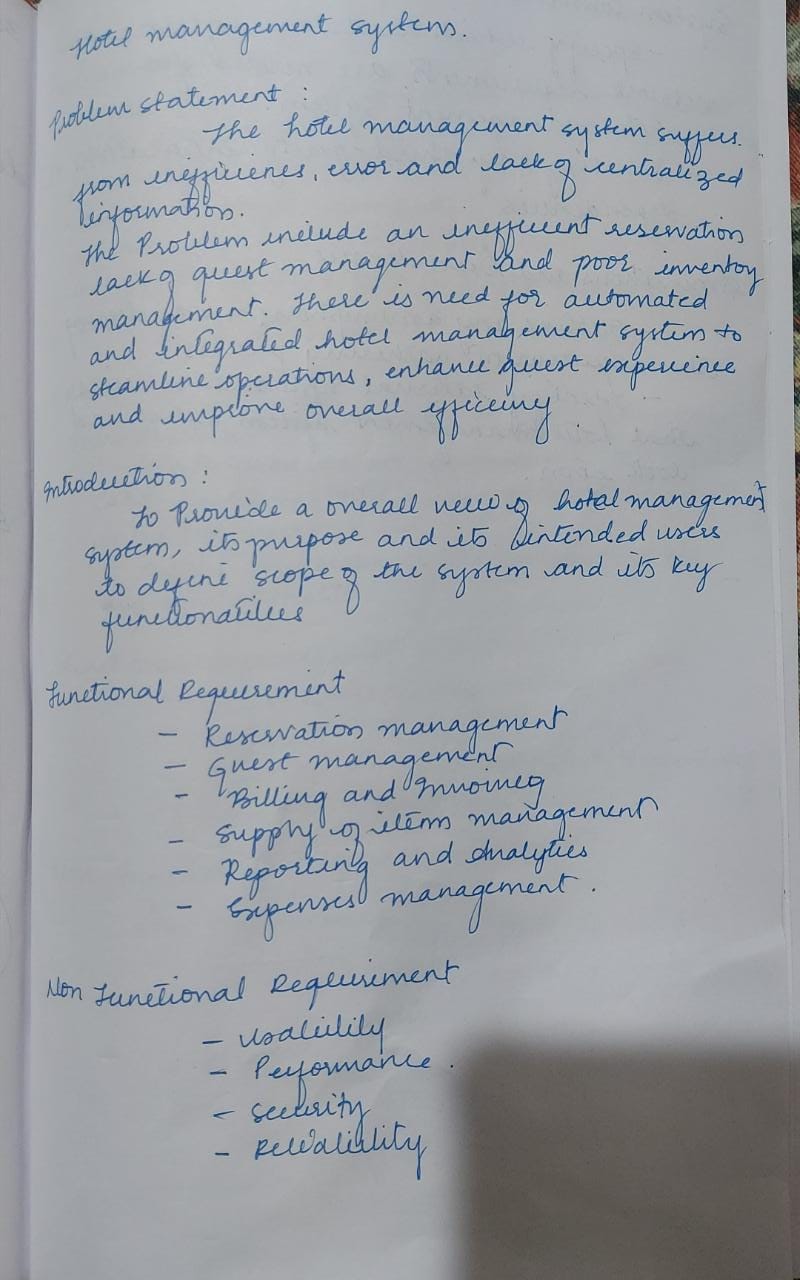 Hotel management system.
Problem statement :
The hotel management system suffers
from inefficienes, error and lack of centralized
information.
The Problem include an inefficient reservation
lack of guest management and poor inventory
management. There is need for automated
and integrated hotel management system to
steamline operations, enhance guest experience
and improve overall efficeny.
Introduction :
To Provide a overall view of hotel management
system, its purpose and its intended users
to define scope of the system and its key
functionatilies
Functional Requirement
- Reservation management
- Guest management
- Billing and Invoineg
- Supply of item management
- Reporting and Analytics
- Expenses management.
Non Functional Requirement
- Usability
- Performance.
- Security
- Reliability